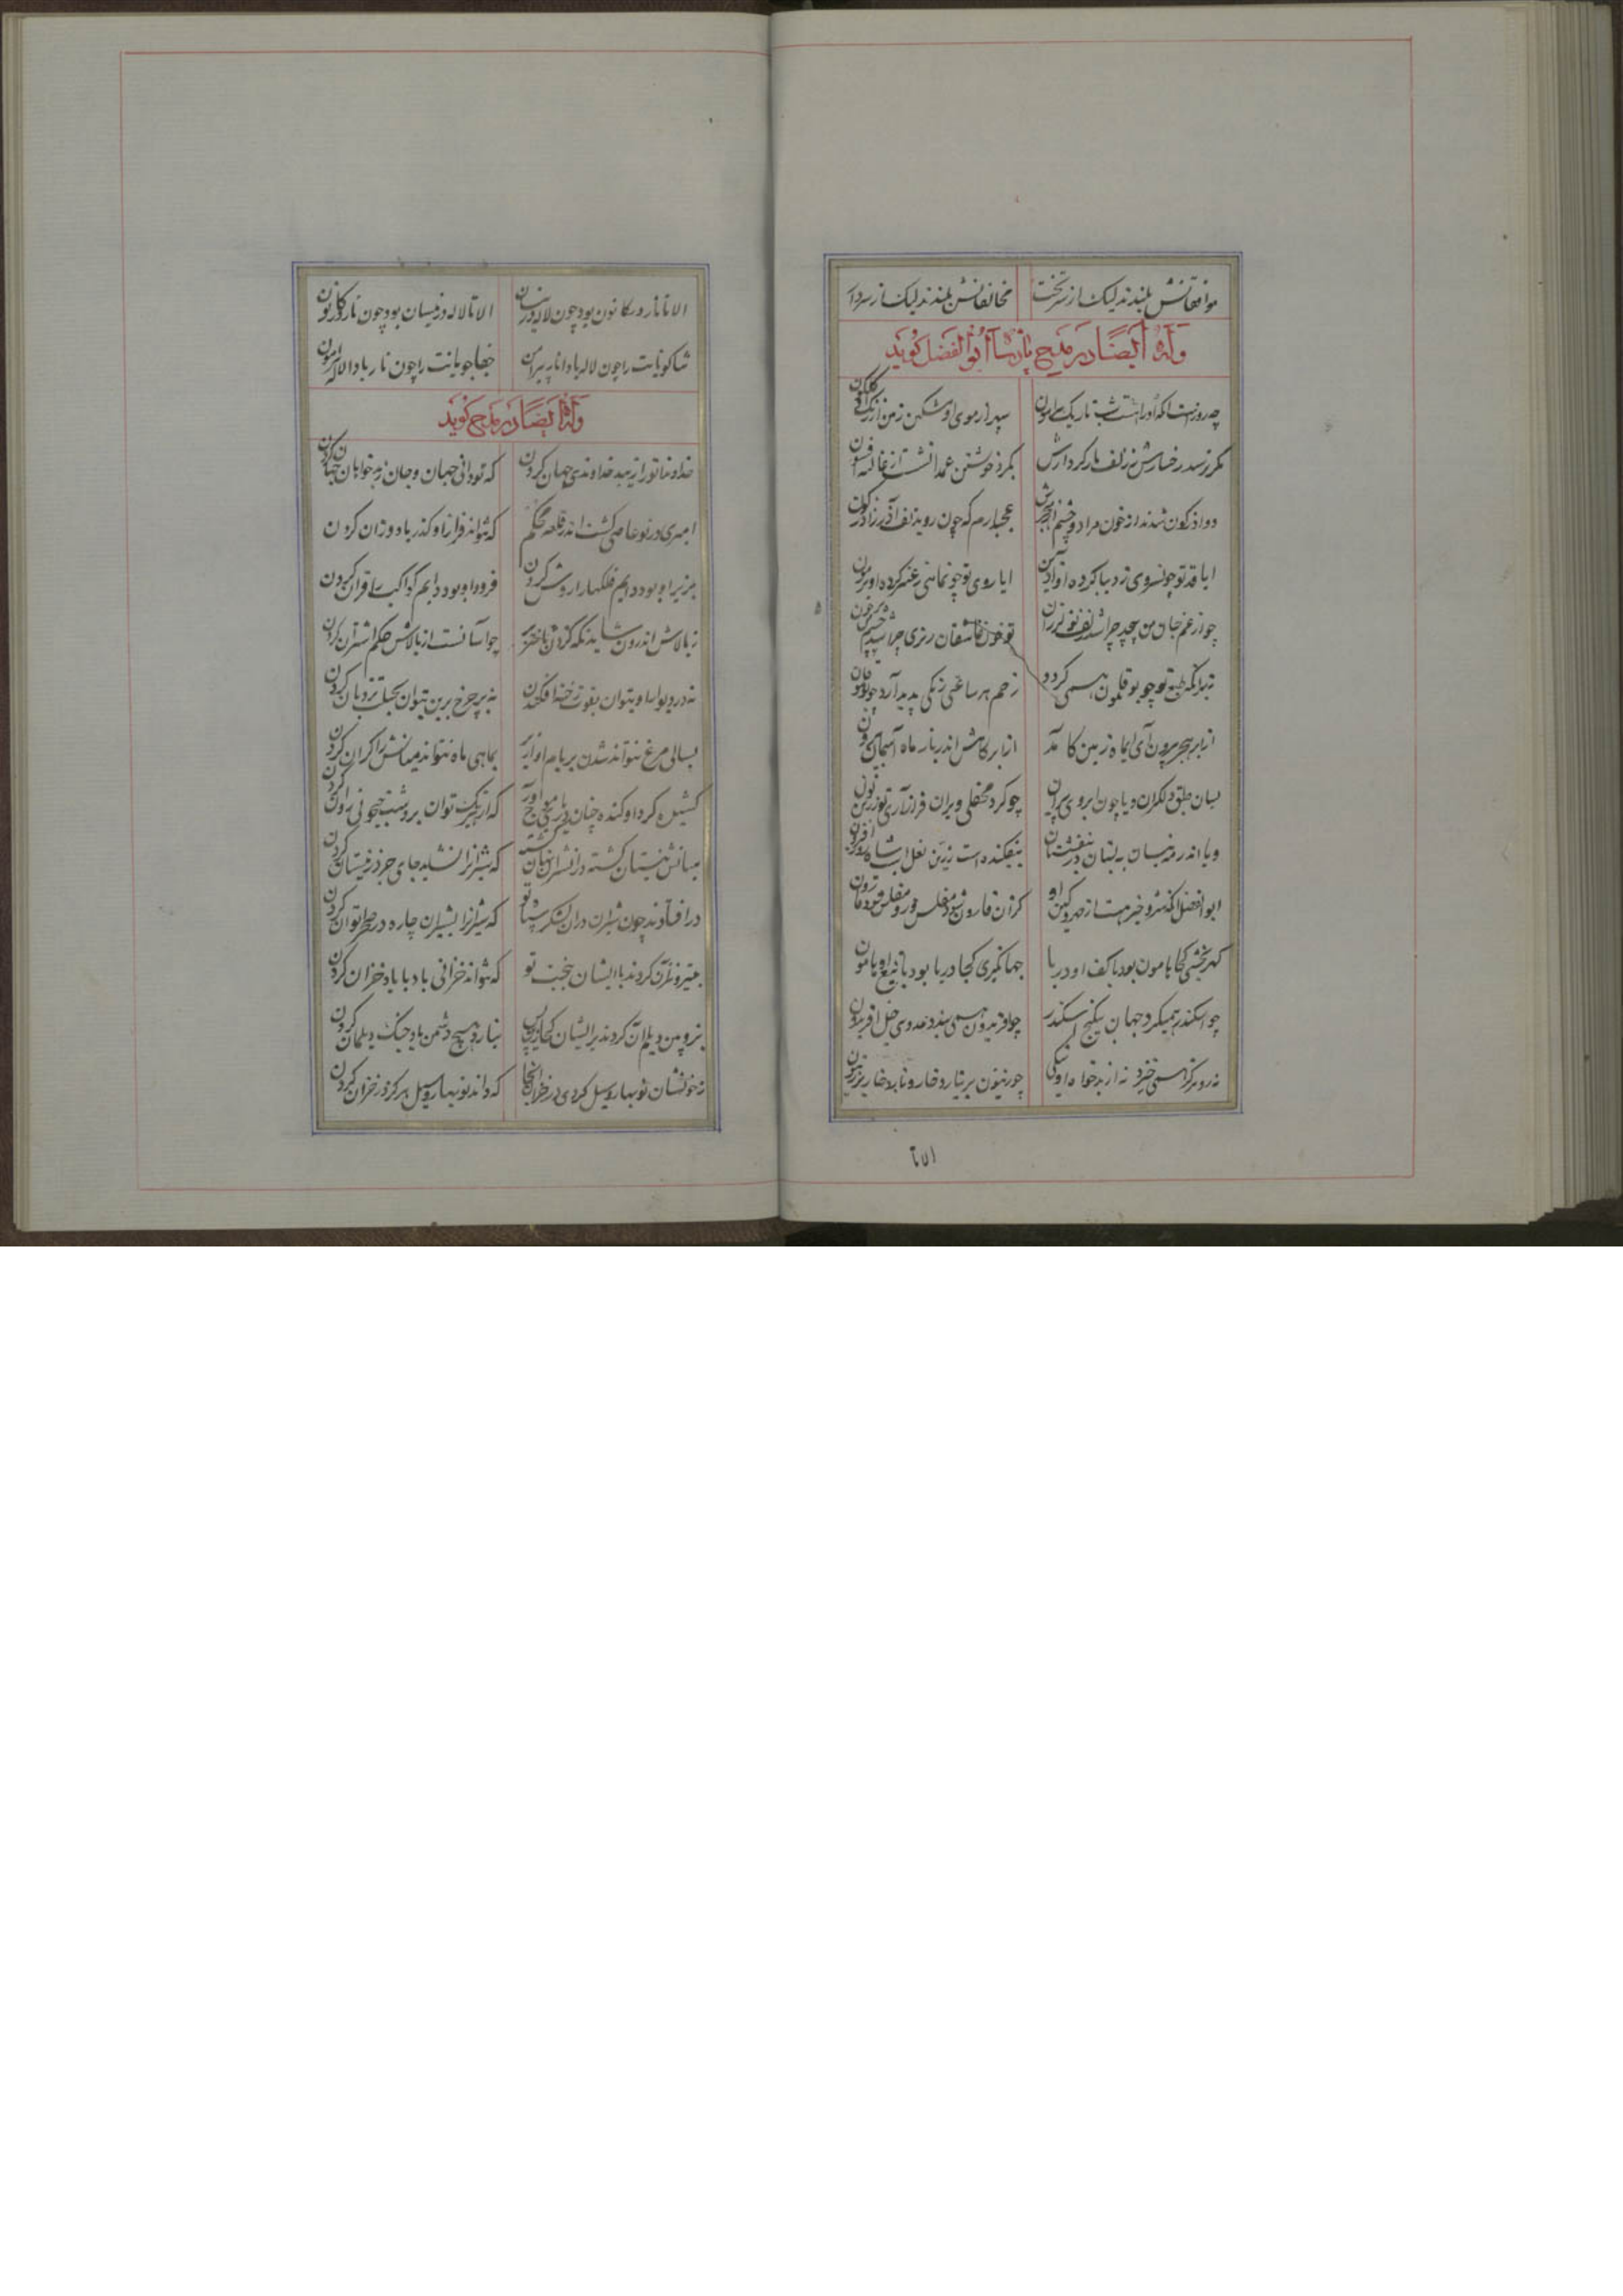 موافقانش بلندند لیک از سر تخت مخالفانش بلندند لیک از سر دار
وله ایضا در مدیح پادشاه ابوالفضل گوید
چه روز است آنکه او را هست شب تاریک پیرامون سپر از موی او مشکین زمین از رنگ او گلگون
مگر ترسد رخسارش ز زلف مار کردارش بگرد خویشتن عمدا نشت از غالیه افسون
دو آذرگون شدند از خون مرا دو چشم از هجرش عجب دارم که چون روید ز آذرگون
ایا قد تو چون سروی ز دیبا کرده او آذین ایا روی تو چون ماهی ز عنبر کرده او پرهون
چو از غم جان من پیچد چرا شد زلف تو لرزان تو خون عاشقان ریزی چرا شد چشم من پر خون
نیرنگ طبع تو چو بوقلمون همی گردد ز خم هر ساعتی رنگی پدید آرد چو بوقلمون
از ابر هجر بیرون آی ای ماه زمین کامد از ابر کاهش اندر بار ماه آسمان بیرون
بسان حلق دلگیران و یا چون ابروی پیران چو گرد محفلی ویران فراز آری تو زرین نون
و یا اندر میستان به بستان در بنفشستان بیفکنده است زرین نعل اسب شاه روزافزون
ابوالفضل آنکه شر و خیر هست از مهر و کین او کزان قارون شود مفلس وزو مفلس شود قارون
گهر بخشی کجا هامون بود با کف او دریا جهانگیری کجا دریا بود با تیغ او هامون
چو اسکندر همی گیرد جهان بی گنج اسکندر چو افریدون همی بندد عدو بی خیل افریدون
نه زو هرگز بدی خیزد نه از بدخواه او نیکی چو زیتون بر نیارد خار و نارد خار بر زیتون
۱۷۶
الا تا نار در کانون بود چون لاله در نیسان الا تا لاله در نیسان بود چون نار در کانون
ثناگویانت را چون لاله بادا نار پیرامن جفاجویانت را چون نار بادا لاله پیرامون
وله ایضا در مدیح گوید
خداوندا تو را زیبد خداوندی جهان کردن که تو دانی جهان و جان ز بدخواهان جهان کردن
امیری در تو عاصی گشت اندر قلعه محکم که نتواند فراز او گذر باد وزان کردن
بزیر او بود دایم فلکها را روش کردن فرود او بود دایم کواکب را قران کردن
ز بالاش اندرون شاید نگه کردن باختر بر چو آسانست از بالاش حکم اختران کردن
نه در دیوار او بتوان بقوت رخنه افکندن نه بر چرخ برین بتوان بحیلت نردبان کردن
بسالی مرغ نتواند شدن بر بام او از بر بماهی ماه نتواند میانش را کران کردن
کشیده گرد او کنده چنان دریا موج آور که از یک تیر نتوان بر دو شب جیحونی روان کردن
میانش نیستان گشته در او شیران نهان گشته که شیران را نشاید جای جز در نیستان کردن
در افتادند چون شیران در آن لشکر سپاه تو که شیران را بشیران چاره در صحرا توان کردن
بتیر و نیزه آن کردند با ایشان بجنب تو که نتواند خزانی باد با باد خزان کردن
بزوپین دیلم آن کردند بر ایشان کجا زین پس نیارد هیچ دشمن یاد جنگ دیلمان کردن
ز خونشان نوبهاری سیل کردی در خزان آنجا که داند نوبهاری سیل هرگز در خزان کردن